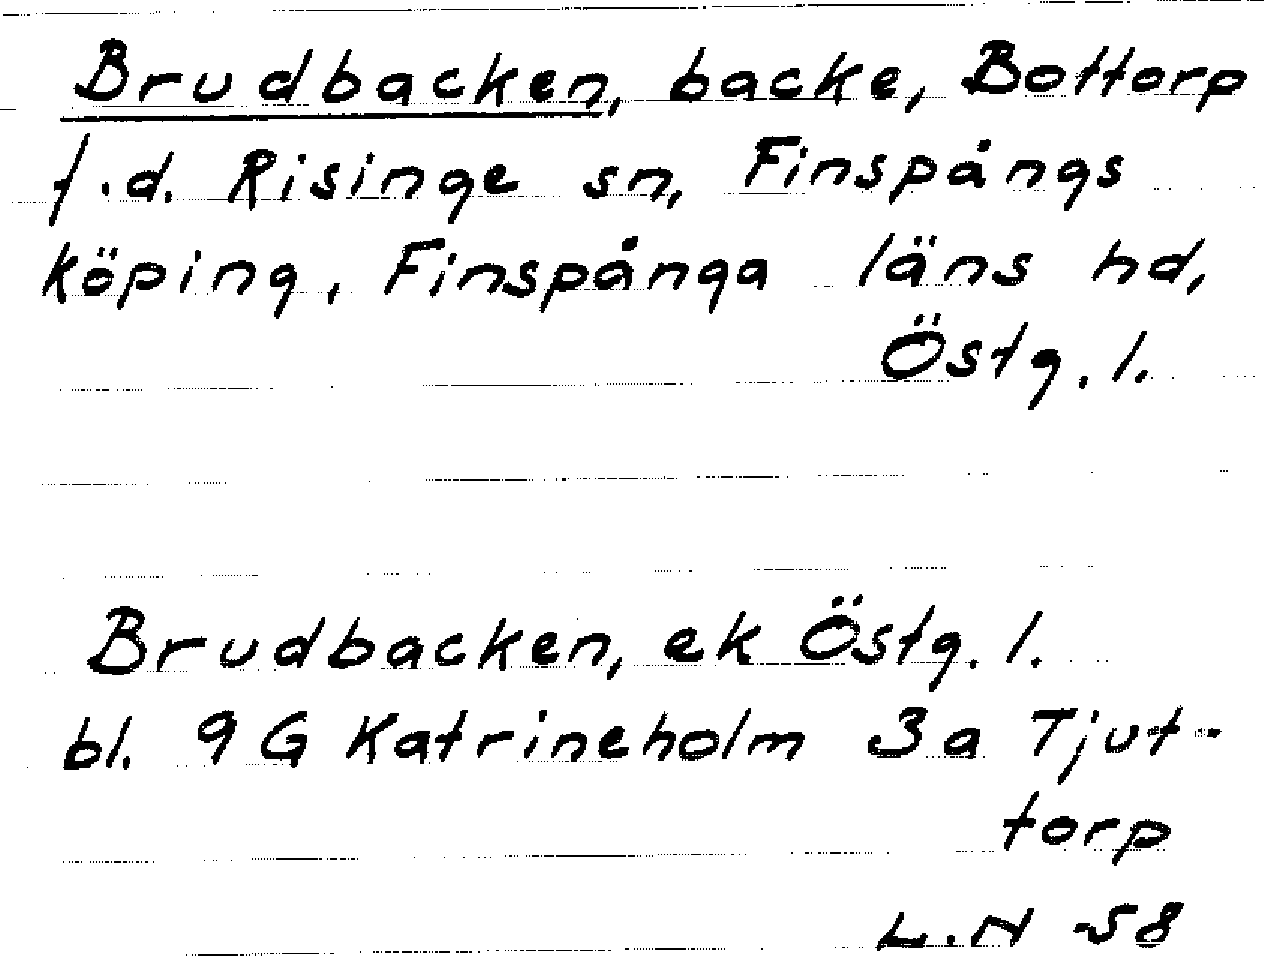 Brudbacken, backe, Bottorp
f.d. Risinge sn, Finspångs
köping, Finspånga läns hd,
Östg. l.
Brudbacken, ek Östg. l.
bl. 9 G Katrineholm 3a Tjut-
torp
L.N -58